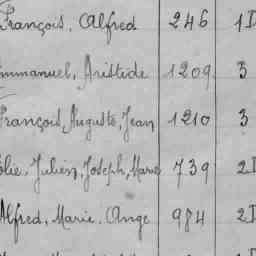 François, Alfred 246 1D
mmanuel, Aristide 1209 3
François, Auguste, Jean 1210 3
olie, Julien, Joseph, Marie 739 2D
Alfred, Marie, Ange 984 2D